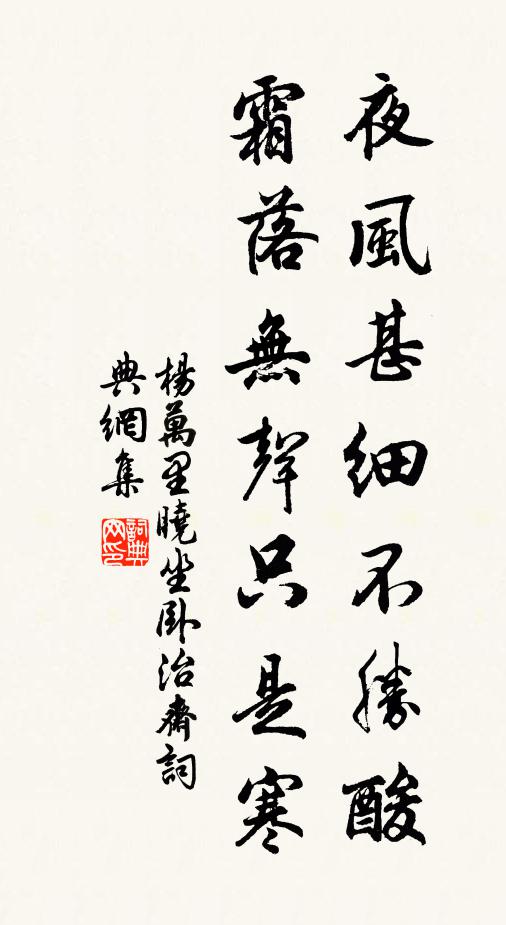 夜風甚細不勝酸
霜落無聲只是寒
楊萬里曉坐臥治齋詞
典網集
詞典網印